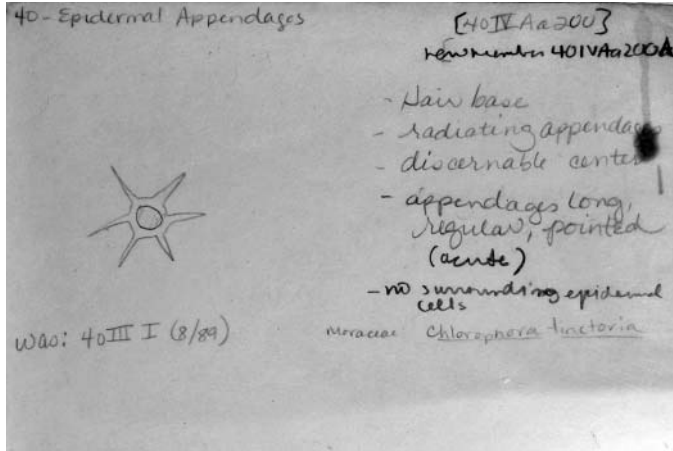 40 - Epidermal Appendages
[40 IV Aa 200]
new number 40 IV Aa 200 A
- Hair base
- radiating appendages
- discernable center
- appendages long,
regular, pointed
(acute)
- no surrounding epidermal
cells
was: 40 III I (8/89)
Moraceae Chlorophora tinctoria